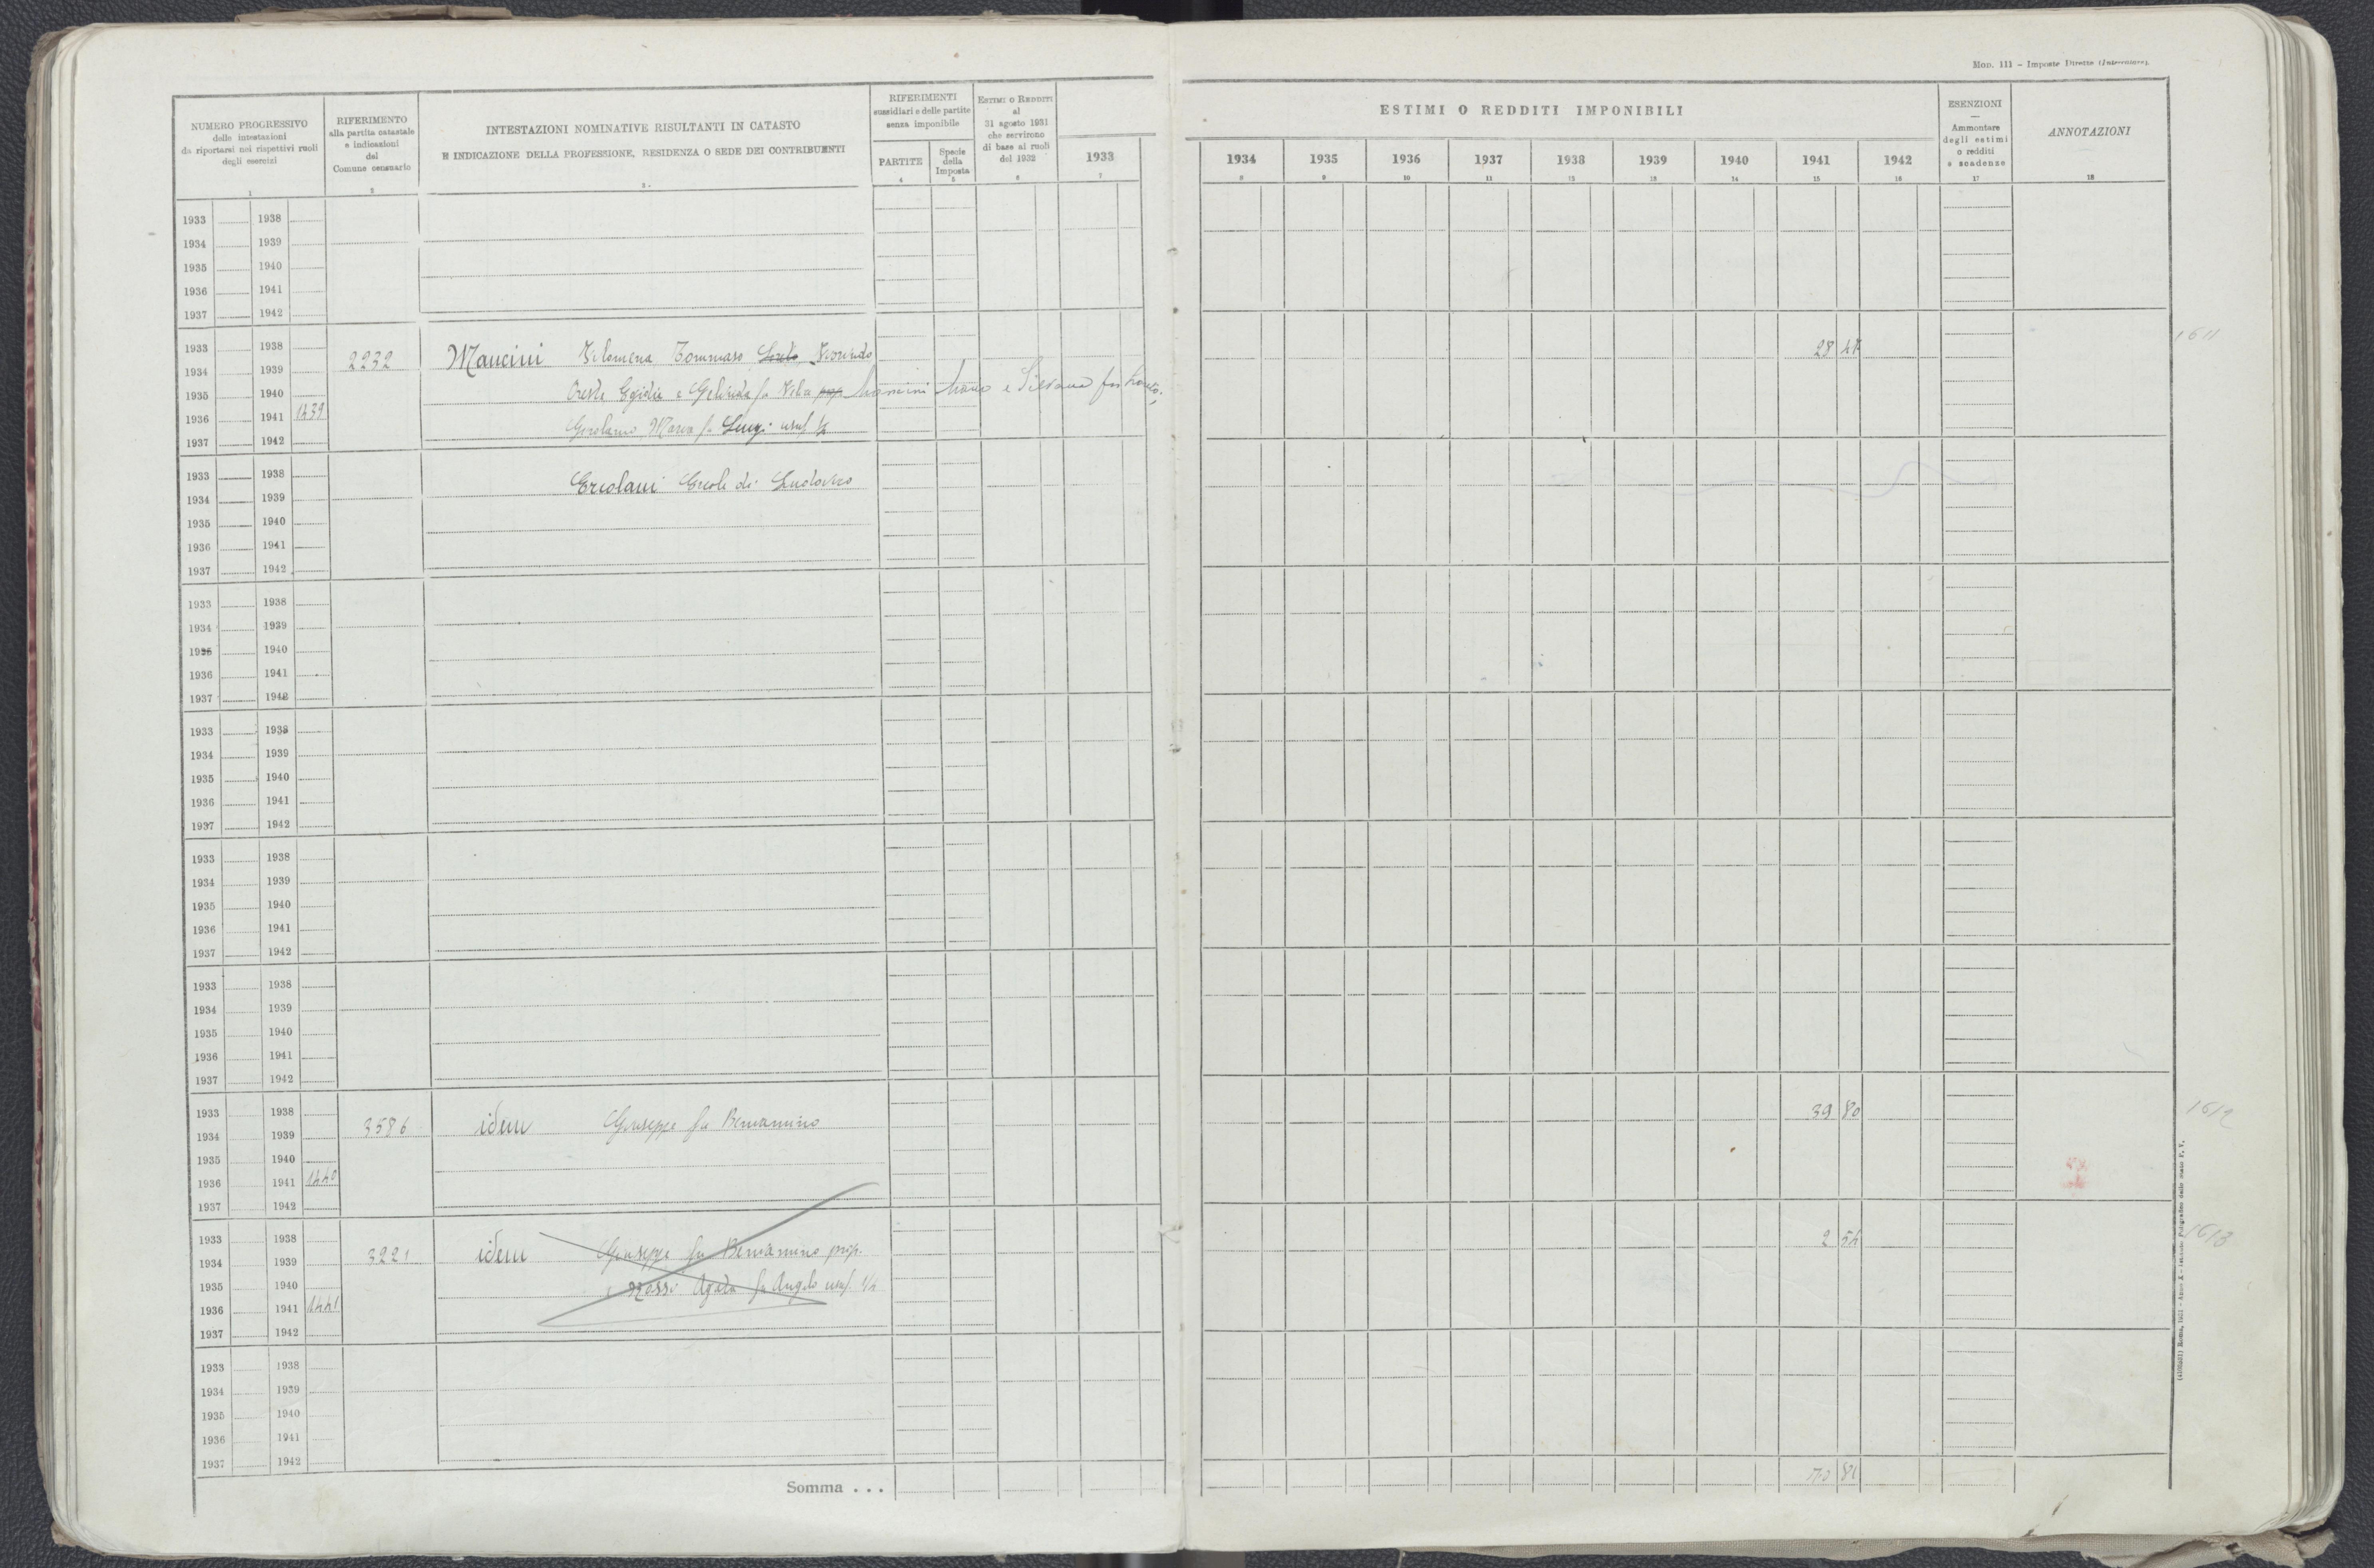 Mod. 111 – Imposte Dirette (Intercalare).
NUMERO PROGRESSIVO
delle intestazioni
da riportarsi nei rispettivi ruoli
degli esercizi
1
RIFERIMENTO
alla partita catastale
e indicazioni
del
Comune censuario
2
INTESTAZIONI NOMINATIVE RISULTANTI IN CATASTO
E INDICAZIONE DELLA PROFESSIONE, RESIDENZA O SEDE DEI CONTRIBUENTI
3
RIFERIMENTI
sussidiari e delle partite
senza imponibile
PARTITE
4
Specie
della
Imposta
5
ESTIMI O REDDITI
al
31 agosto 1931
che servirono
di base ai ruoli
del 1932
6
1933
7
ESTIMI O REDDITI IMPONIBILI
1934 1935 1936 1937 1938 1939 1940 1941 1942
8 9 10 11 12 13 14 15 16
ESENZIONI
—
Ammontare
degli estimi
o redditi
e scadenze
17
ANNOTAZIONI
18
1933 1938
1934 1939
1935 1940
1936 1941
1937 1942
1933 1938
1934 1939
1935 1940
1936 1941 1439
1937 1942
2232
Mancini Filomena Tommaso Loreto
Oreste Egidio e Gelinda fu
Mancini e Silvana fu Loreto;
Maria fu Luigi usuf.
28
1611
1933 1938
1934 1939
1935 1940
1936 1941
1937 1942
Ercolani Ercole di Ludovico
1933 1938
1934 1939
1935 1940
1936 1941
1937 1942
1933 1938
1934 1939
1935 1940
1936 1941
1937 1942
1933 1938
1934 1939
1935 1940
1936 1941
1937 1942
1933 1938
1934 1939
1935 1940
1936 1941
1937 1942
1933 1938
1934 1939
1935 1940
1936 1941 1440
1937 1942
3586
idem Giuseppe fu Beniamino
39 80
1612
1933 1938
1934 1939
1935 1940
1936 1941 1441
1937 1942
3221
idem Giuseppe fu Beniamino prop.
e Rossi Agata fu Angelo usuf.
2 54
1613
1933 1938
1934 1939
1935 1940
1936 1941
1937 1942
Somma . . .